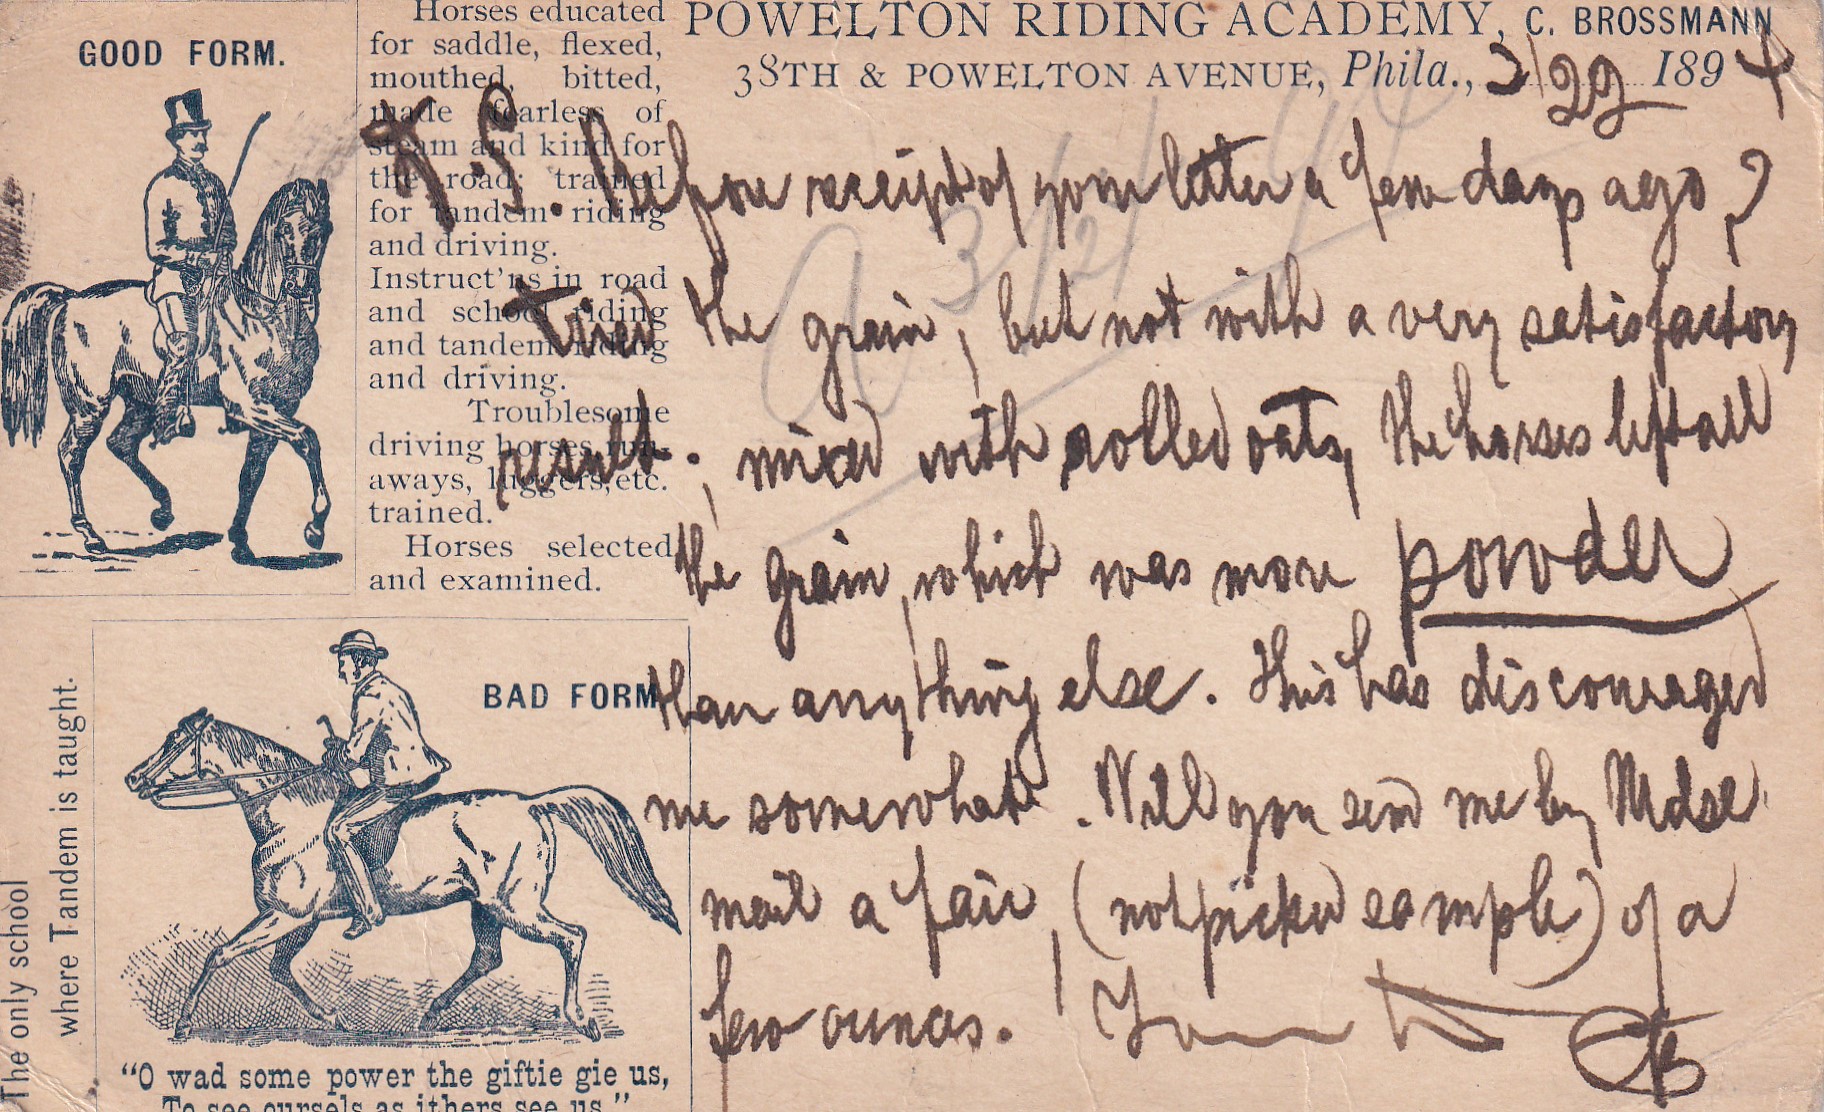 GOOD FORM.
Horses educated
for saddle, flexed,
mouthed, bitted,
made fearless of
steam and kind for
the road; trained
for tandem riding
and driving.
Instruct'ns in road
and school riding
and tandem riding
and driving.
Troublesome
driving horses, run-
aways, luggers, etc.
trained.
Horses selected
and examined.
The only school
where Tandem is taught.
BAD FORM
"O wad some power the giftie gie us,
To see oursels as ithers see us."
POWELTON RIDING ACADEMY, C. BROSSMANN
38TH & POWELTON AVENUE, Phila., 3/22 1894
3/21 94
Before receipt of your letter a few days ago I
tried the grain, but not with a very satisfactory
result; mixed with rolled oats, the horses left all
the grain, which was more powder
than anything else. This has discouraged
me somewhat. Will you send me by Mdse
mail a fair, (not picked sample) of a
few ounces. Yours
CB